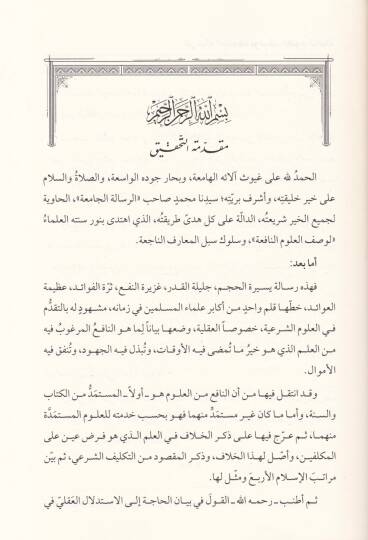 بسم الله الرحمن الرحيم
مقدمة التحقيق
الحمدُ لله على غيوث آلائه الهامعة، وبحار جوده الواسعة، والصلاةُ والسلام
على خير خليقته، وأشرف بريّته؛ سيدنا محمدٍ صاحب «الرسالة الجامعة»، الحاوية
لجميع الخير شريعتُه، الدالّة على كل هدىً طريقتُه، الذي اهتدى بنور سنته العلماءُ
«لوصف العلوم النافعة»، وسلوك سبل المعارف الناجعة.
أما بعد:
فهذه رسالة يسيرة الحجم، جليلة القدر، غزيرة النفع، ثرّة الفوائد، عظيمة
العوائد، خطّها قلم واحدٍ من أكابر علماء المسلمين في زمانه، مشهودٍ له بالتقدُّم
في العلوم الشرعية، خصوصاً العقلية، وضعها بياناً لِما هو النافعُ المرغوبُ فيه
من العلم الذي هو خيرُ ما تُمضى فيه الأوقات، وتُبذل فيه الجهود، وتُنفق فيه
الأموال.
وقد انتقل فيها من أن النافع من العلوم هو ـ أولاً ـ المستمَدُّ من الكتاب
والسنة، وأما ما كان غير مستمَدٍّ منهما فهو بحسب خدمته للعلوم المستمَدَّة
منهما، ثم عرّج فيها على ذكر الخلاف في العلم الذي هو فرض عين على
المكلفين، وأصّل لهذا الخلاف، وذكر المقصود من التكليف الشرعي، ثم بيّن
مراتبَ الإسلام الأربعَ ومثّل لها.
ثم أطنب ـ رحمه الله ـ القولَ في بيان الحاجة إلى الاستدلال العَقليّ في